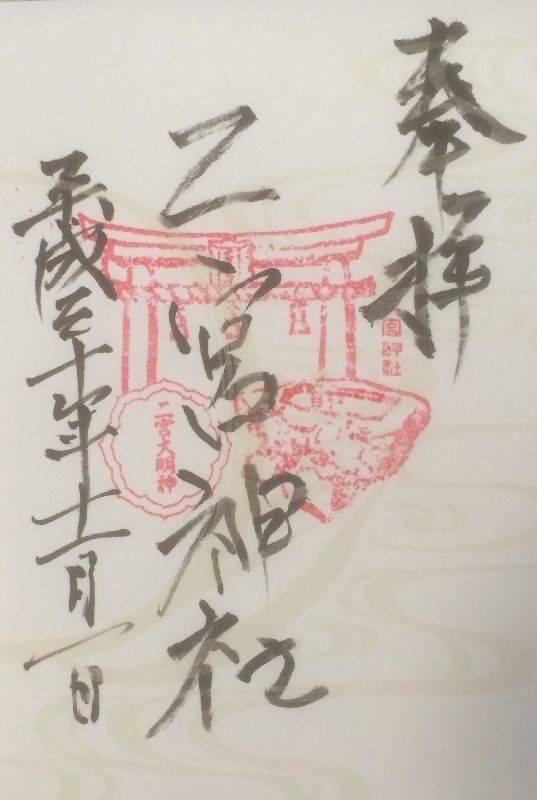 奉拝
二宮神社
平成三十年十一月一日
二宮大明神
宮神社